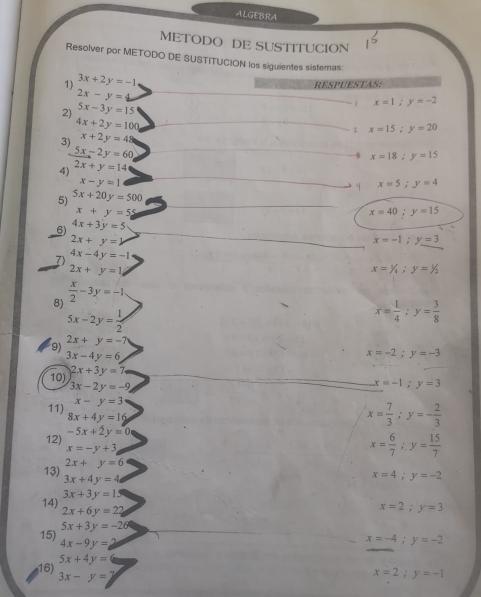 ALGEBRA
METODO DE SUSTITUCION 15
Resolver por METODO DE SUSTITUCION los siguientes sistemas:
RESPUESTAS:
1) 3x + 2y = -1
2x - y = 4
x = 1 ; y = -2
2) 5x - 3y = 15
4x + 2y = 100
x = 15 ; y = 20
3) x + 2y = 48
5x - 2y = 60
x = 18 ; y = 15
4) 2x + y = 14
x - y = 1
x = 5 ; y = 4
5) 5x + 20y = 500
x + y = 55
x = 40 ; y = 15
6) 4x + 3y = 5
2x + y = 1
x = -1 ; y = 3
7) 4x - 4y = -1
2x + y = 1
x = ¼ ; y = ½
8) x/2 - 3y = -1
5x - 2y = 1/2
x = 1/4 ; y = 3/8
9) 2x + y = -7
3x - 4y = 6
x = -2 ; y = -3
10) 2x + 3y = 7
3x - 2y = -9
x = -1 ; y = 3
11) x - y = 3
8x + 4y = 16
x = 7/3 ; y = -2/3
12) -5x + 2y = 0
x = -y + 3
x = 6/7 ; y = 15/7
13) 2x + y = 6
3x + 4y = 4
x = 4 ; y = -2
14) 3x + 3y = 15
2x + 6y = 22
x = 2 ; y = 3
15) 5x + 3y = -26
4x - 9y = 2
x = -4 ; y = -2
16) 5x + 4y = 6
3x - y = 7
x = 2 ; y = -1